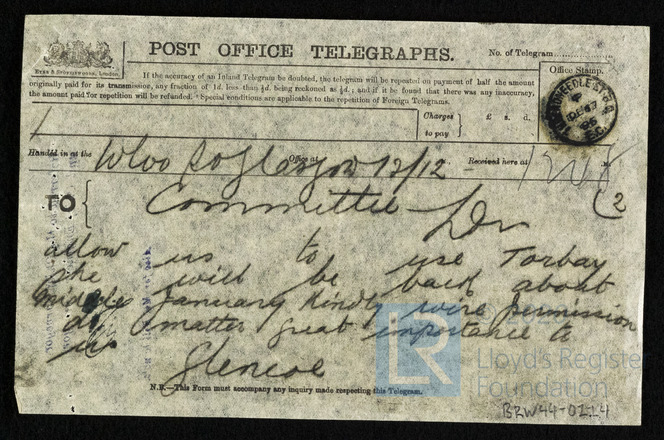 POST OFFICE TELEGRAPHS.
No. of Telegram
EYRE & SPOTTISWOODE, London.
Office Stamp.
If the accuracy of an Inland Telegram be doubted, the telegram will be repeated on payment of half the amount
originally paid for its transmission, any fraction of 1d. less than ½d. being reckoned as ½d.; and if it be found that there was any inaccuracy,
the amount paid for repetition will be refunded. Special conditions are applicable to the repetition of Foreign Telegrams.
Charges to pay £ s. d.
THREADNEEDLE ST. B.O.
DE 17
95
E.C.
Handed in at the Office at 12/12 Received here at
TO Committee
allow us to use Torbay
she will be back about
middle January Kindly wire permission
as matter great importance to
us
Glencoe
N.B.—This Form must accompany any inquiry made respecting this Telegram.
LR
Lloyd's Register
Foundation
BRW44-0114